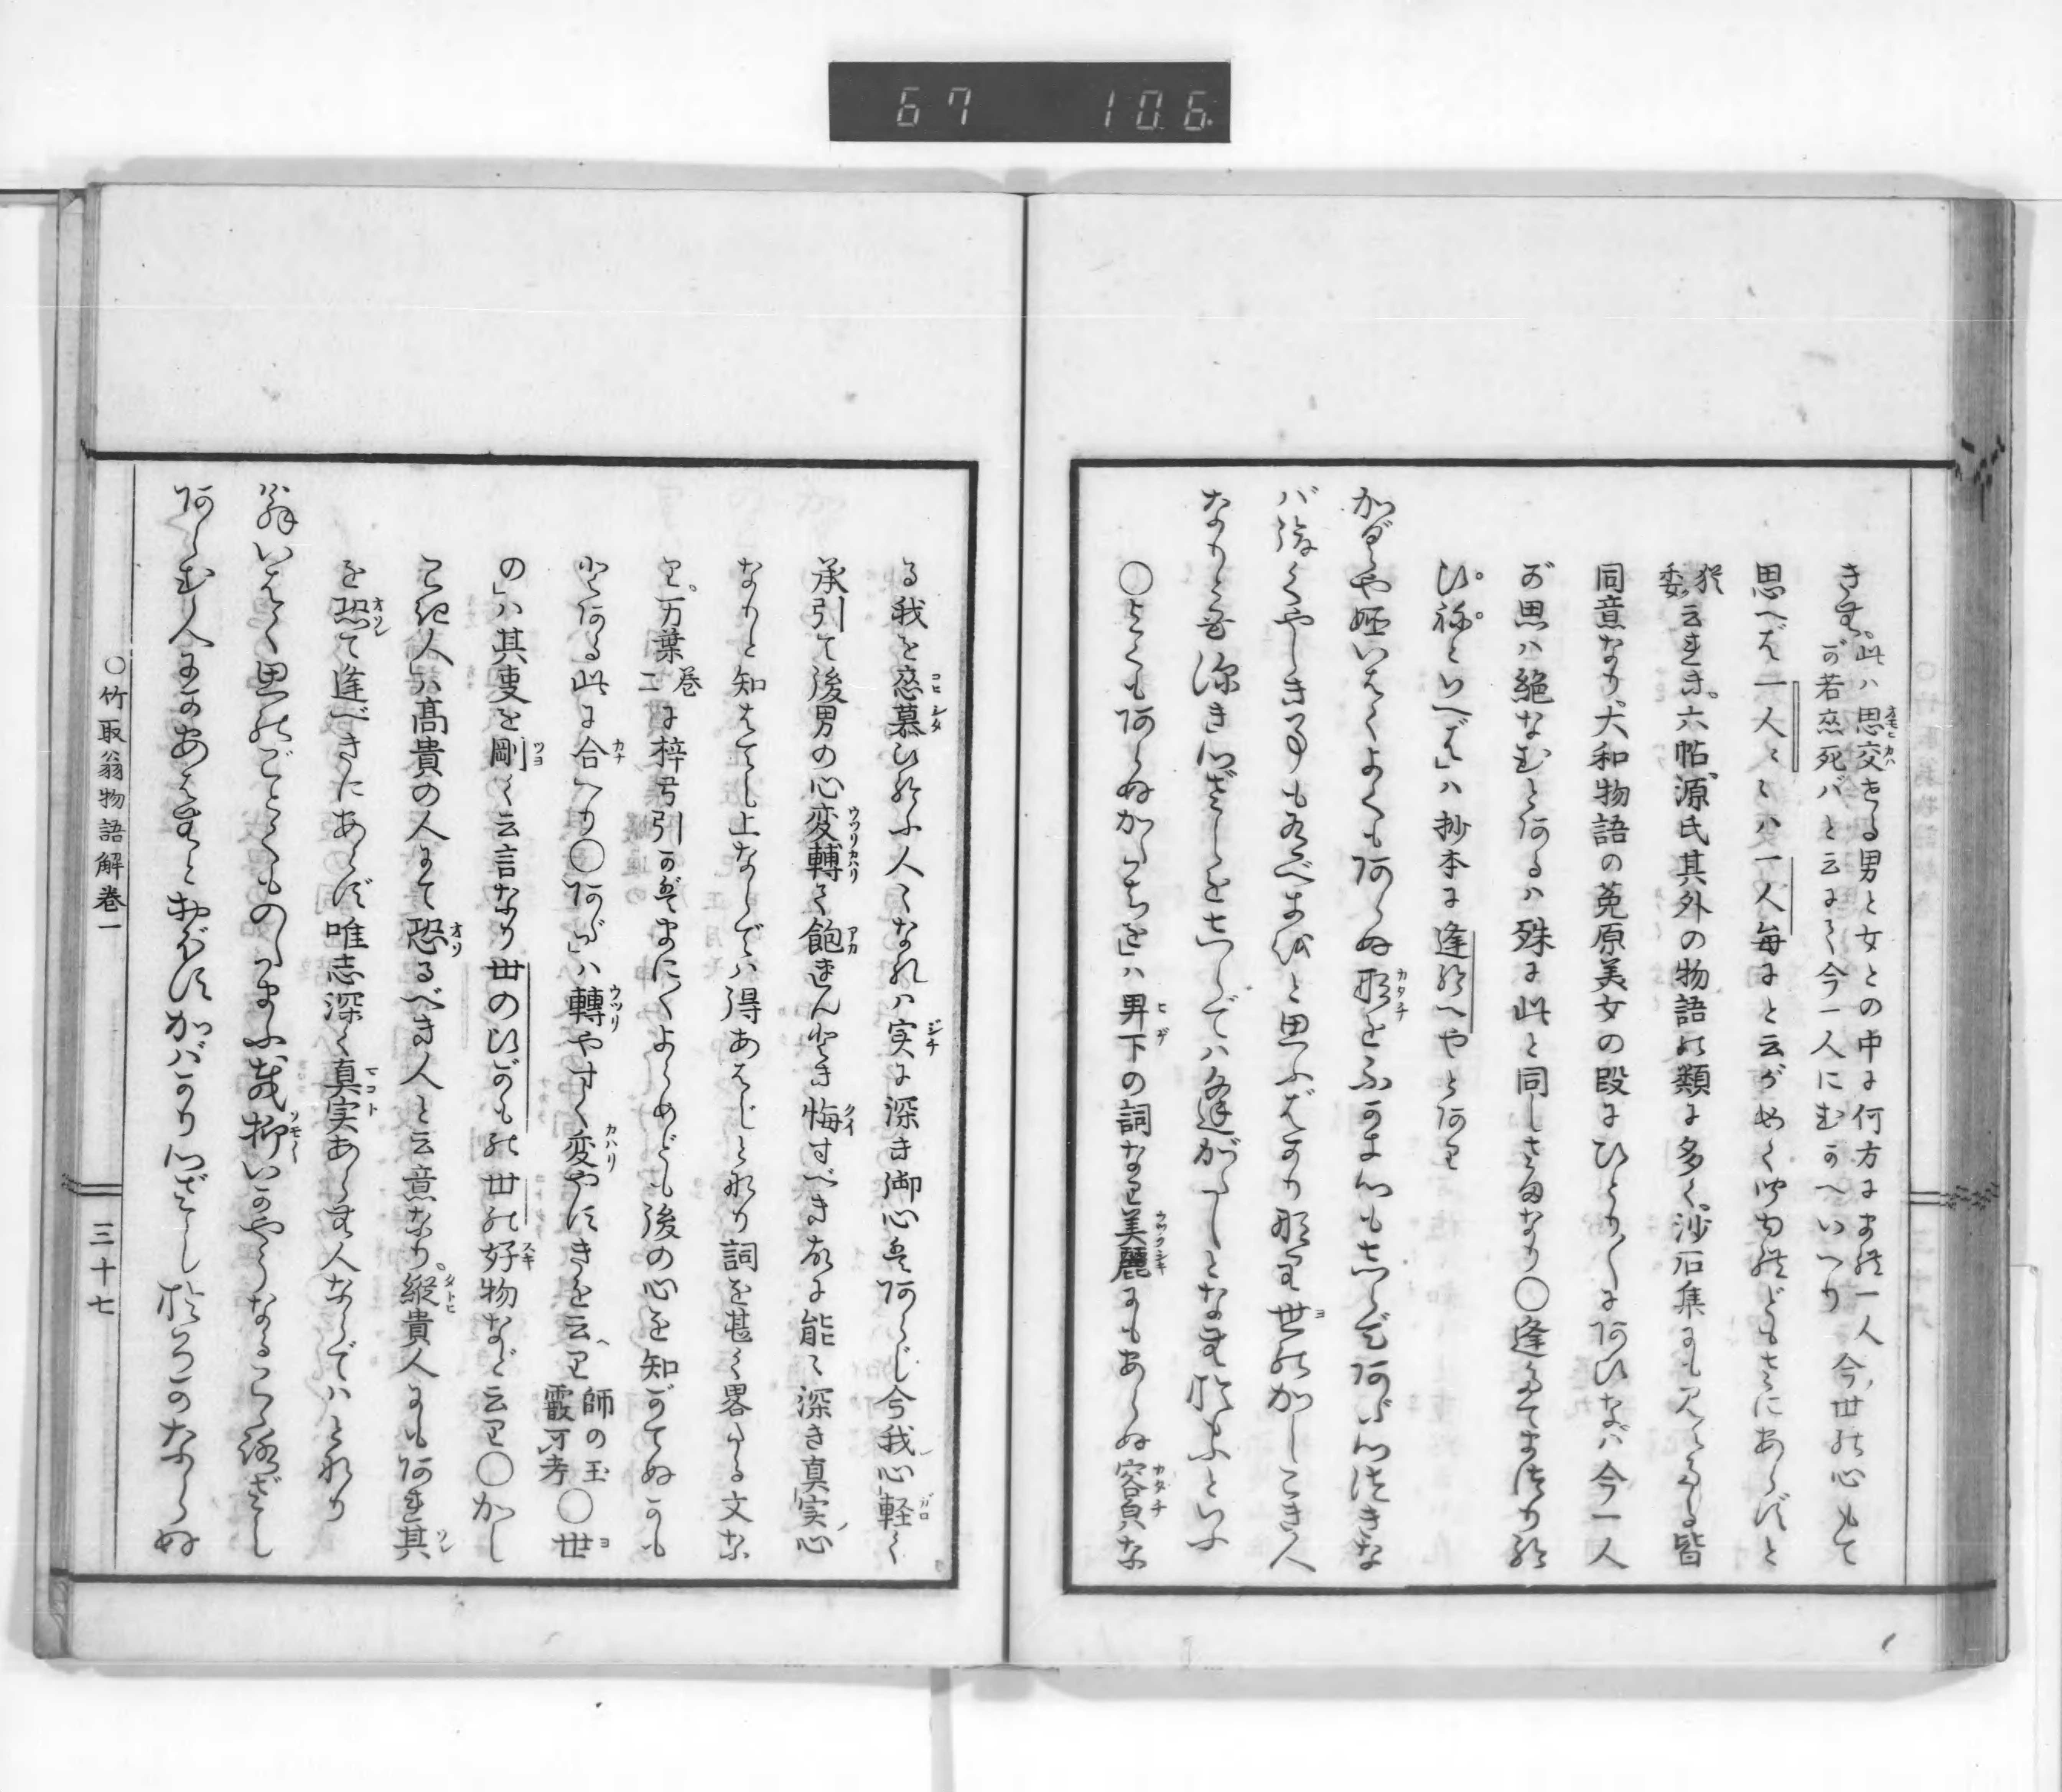 67 106
きも。此ハ思交せる男と女との中に何方にまれ一人今世の心もて
が若恋死バと云にて今一人にむかへいへり
思へば一人〻〻ハ一人毎にと云がめく聞ゆれどもさにあらずと
猶委云べき。六帖源氏其外の物語の類に多く沙石集にも見えたる皆
同意なり大和物語の菟原美女の段にひとり〳〵にあひなバ今一人
が思ハ絶なむとあるハ殊に此と同しさまなり〇逢奉てまつり給
ひ。ね。といへば」ハ抄本に逢給へやとあり
かぐや姫いはくよくもあらぬ形をふかき心もしらであだ心つきな
バ後くやしき事も有べきをと思ふばかりなり世のかしこき人
なりとも深き心ざしをしらでハ逢がたしとなも思ふといふ
〇よくもあらぬかたちを」ハ卑下の詞なり美麗にもあらぬ容㒵な
る我を恋慕ひ給ふ人〻なれハ実に深き御心もあらじ今我心軽く
承引て後男の心変轉て飽ましき悔すべき故に能〻深き真実心
なりと知えてし上ならでハ得あはじとなり詞を甚く畧ける文な
り。万葉巻二に梓弓引かばまにくよらめども後の心を知がてぬかも
とある此に合へり〇あだ」ハ轉やすく変やすきを云へり師の玉霰可考〇世
の」ハ其事を剛く云言なり世のひがもの世の好物など云り〇かし
こき人」ハ髙貴の人にて恐るべき人と云意なり。縦貴人にもあれ其
を恐て逢べきにあらず唯志深く真実あらむ人ならでハとなり
翁いはく思のごとくものたまふ哉抑いかやうなるこゝろざし
あらむ人にかあはむとおぼすかバかり心ざしおろかならぬ
〇竹取翁物語解巻一
三十七